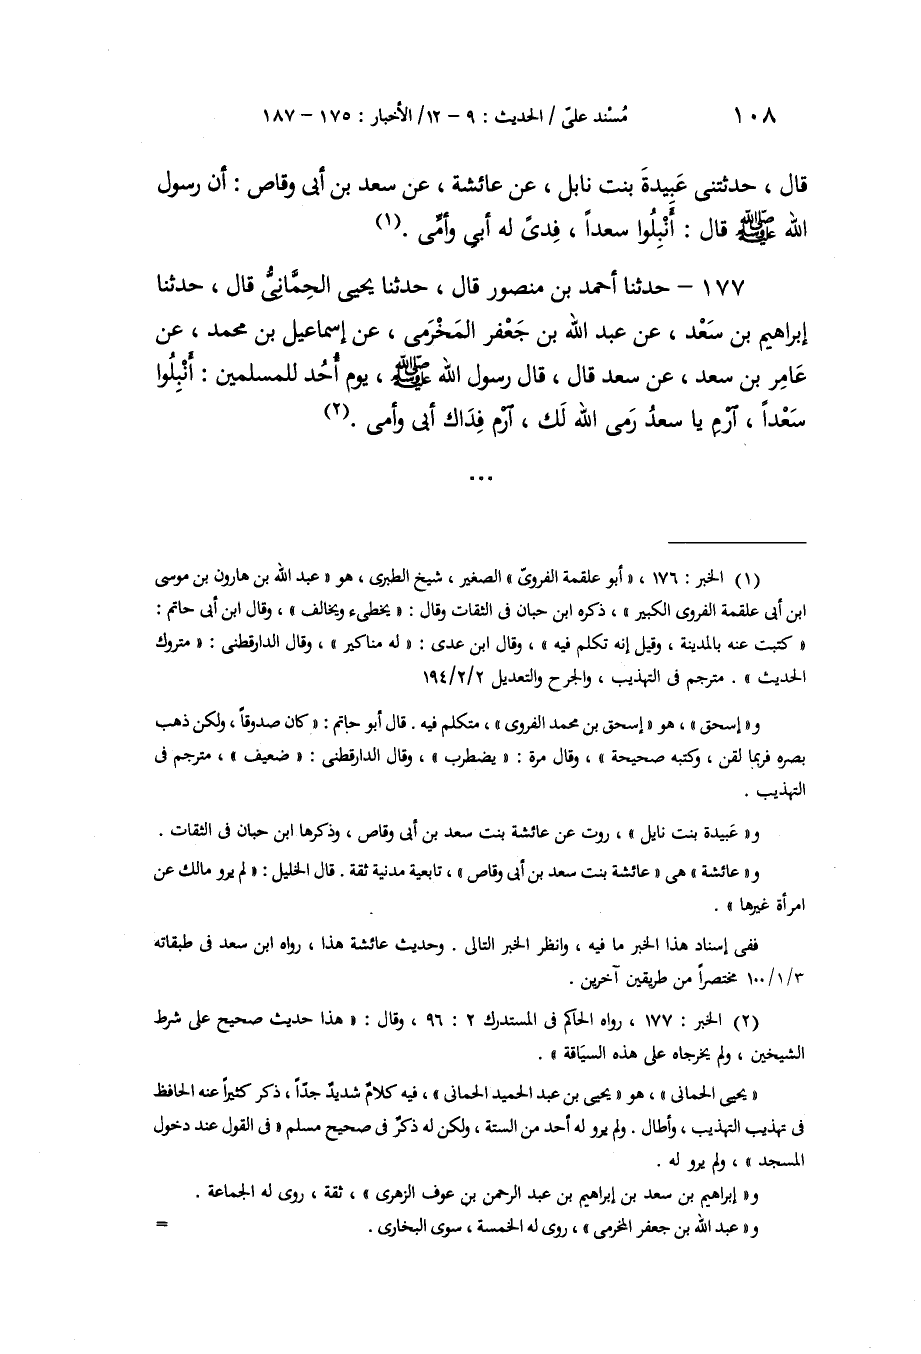 ١٠٨ مُسْند علىّ / الحديث : ٩ – ١٢/ الأخبار : ١٧٥ – ١٨٧
قال ، حدثتنى عَبِيدةَ بنت نابل ، عن عائشة ، عن سعد بن أبى وقاص : أن رسول
الله ﷺ قال : أَنْبِلُوا سعداً ، فِدىً له أبي وأمِّى .(١)
١٧٧ – حدثنا أحمد بن منصور قال ، حدثنا يحيى الحِمَّانِيُّ قال ، حدثنا
إبراهيم بن سَعْد ، عن عبد الله بن جَعْفر المَخْرَمى ، عن إسماعيل بن محمد ، عن
عَامِر بن سعد ، عن سعد قال ، قال رسول الله ﷺ ، يوم أُحُد للمسلمين : أَنْبِلُوا
سَعْداً ، آرْمِ يا سعدُ رَمى الله لَك ، آرْم فِدَاك أبى وأمى .(٢)
...
(١) الخبر : ١٧٦ ، « أبو علقمة الفروىّ » الصغير ، شيخ الطبرى ، هو « عبد الله بن هارون بن موسى
ابن أبى علقمة الفروى الكبير » ، ذكره ابن حبان فى الثقات وقال : « يخطىء ويخالف » ، وقال ابن أبى حاتم :
« كتبت عنه بالمدينة ، وقيل إنه تكلم فيه » ، وقال ابن عدى : « له مناكير » ، وقال الدارقطنى : « متروك
الحديث » . مترجم فى التهذيب ، والجرح والتعديل ١٩٤/٢/٢
و« إسحق » ، هو « إسحق بن محمد الفروى » ، متكلم فيه . قال أبو حاتم : « كان صدوقاً ، ولكن ذهب
بصره فربما لقن ، وكتبه صحيحة » ، وقال مرة : « يضطرب » ، وقال الدارقطنى : « ضعيف » ، مترجم فى
التهذيب .
و« عَبيدة بنت نايل » ، روت عن عائشة بنت سعد بن أبى وقاص ، وذكرها ابن حبان فى الثقات .
و« عائشة » هى « عائشة بنت سعد بن أبى وقاص » ، تابعية مدنية ثقة . قال الخليل : « لم يرو مالك عن
امرأة غيرها » .
ففى إسناد هذا الخبر ما فيه ، وانظر الخبر التالى . وحديث عائشة هذا ، رواه ابن سعد فى طبقاته
١٠٠/١/٣ مختصراً من طريقين آخرين .
(٢) الخبر : ١٧٧ ، رواه الحاكم فى المستدرك ٢ : ٩٦ ، وقال : « هذا حديث صحيح على شرط
الشيخين ، ولم يخرجاه على هذه السيَاقة » .
« يحيى الحمانى » ، هو « يحيى بن عبد الحميد الحمانى » ، فيه كلامٌ شديدٌ جدّاً ، ذكر كثيراً عنه الحافظ
فى تهذيب التهذيب ، وأطال . ولم يرو له أحد من الستة ، ولكن له ذكرٌ فى صحيح مسلم « فى القول عند دخول
المسجد » ، ولم يرو له .
و« إبراهيم بن سعد بن إبراهيم بن عبد الرحمن بن عوف الزهرى » ، ثقة ، روى له الجماعة .
و« عبد الله بن جعفر المخرمى » ، روى له الخمسة ، سوى البخارى . =